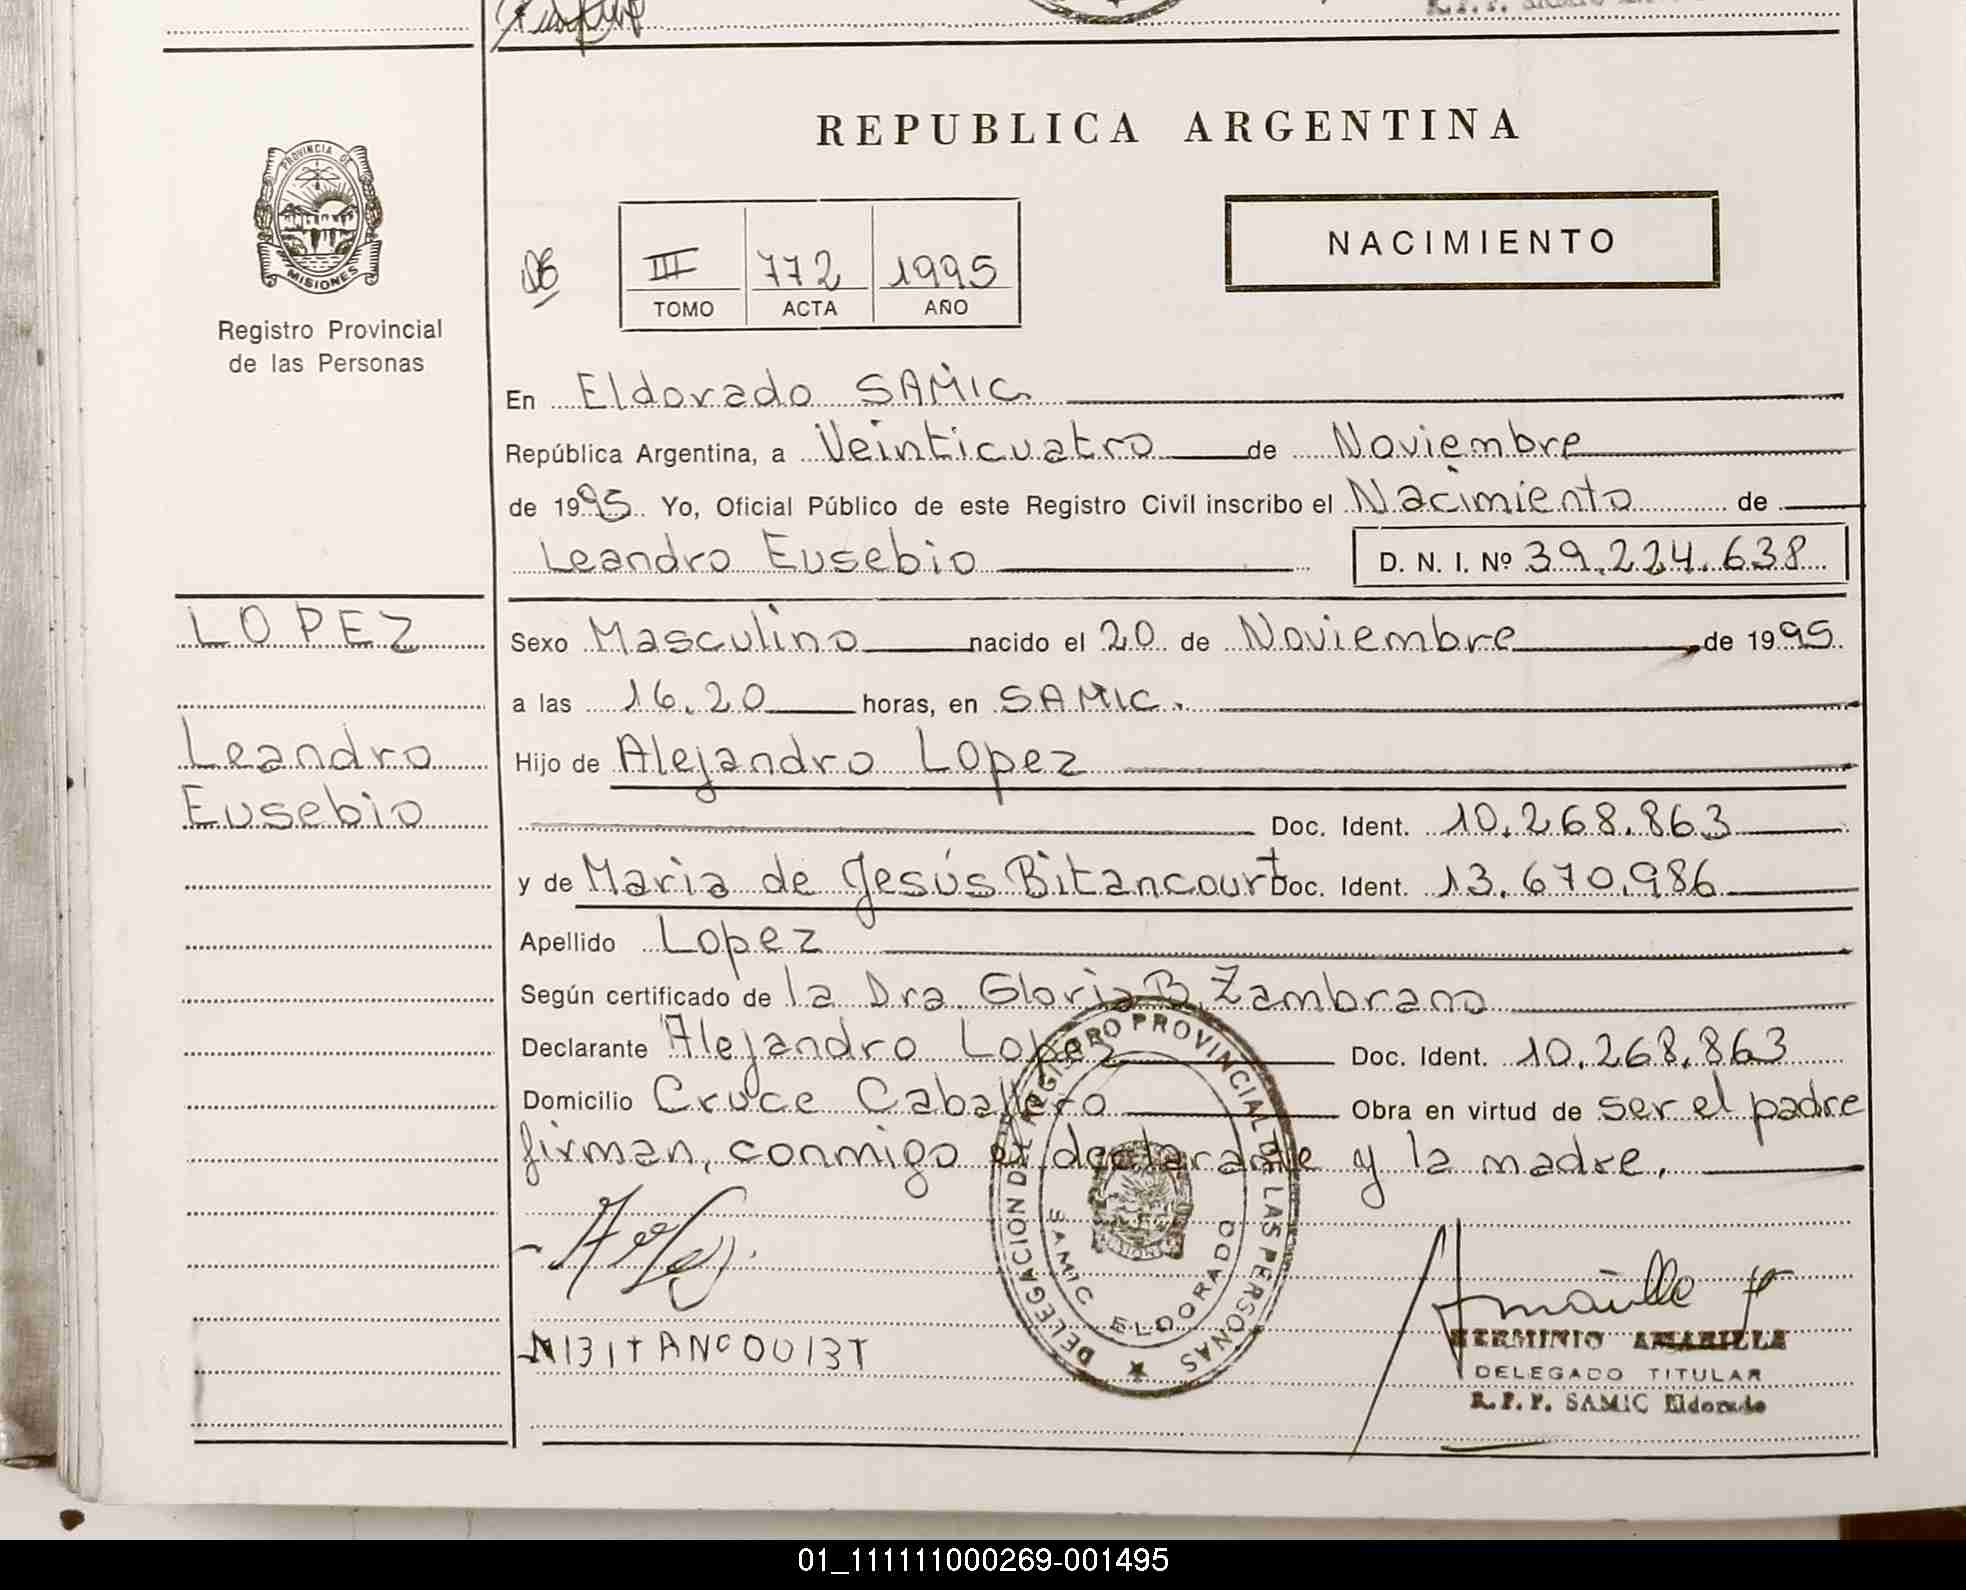 REPUBLICA ARGENTINA
PROVINCIA DE
MISIONES
Registro Provincial
de las Personas
III 772 1995
TOMO ACTA AÑO
NACIMIENTO
En Eldorado SAMIC.
República Argentina, a Veinticuatro de Noviembre
de 1995 Yo, Oficial Público de este Registro Civil inscribo el Nacimiento de
Leandro Eusebio D. N. I. Nº 39.224.638
LOPEZ
Leandro
Eusebio
Sexo Masculino nacido el 20 de Noviembre de 1995
a las 16.20 horas, en SAMIC.
Hijo de Alejandro Lopez
Doc. Ident. 10.268.863
y de Maria de Jesús Bitancourt Doc. Ident. 13.670.986
Apellido Lopez
Según certificado de la Dra. Gloria B. Zambrano
Declarante Alejandro Lopez Doc. Ident. 10.268.863
Domicilio Cruce Caballero Obra en virtud de ser el padre
firman, conmigo el declarante y la madre.
DELEGACION DEL REGISTRO PROVINCIAL DE LAS PERSONAS
SAMIC ELDORADO
HERMINIO AMARILLA
DELEGADO TITULAR
R.P.P. SAMIC Eldorado
01_111111000269-001495